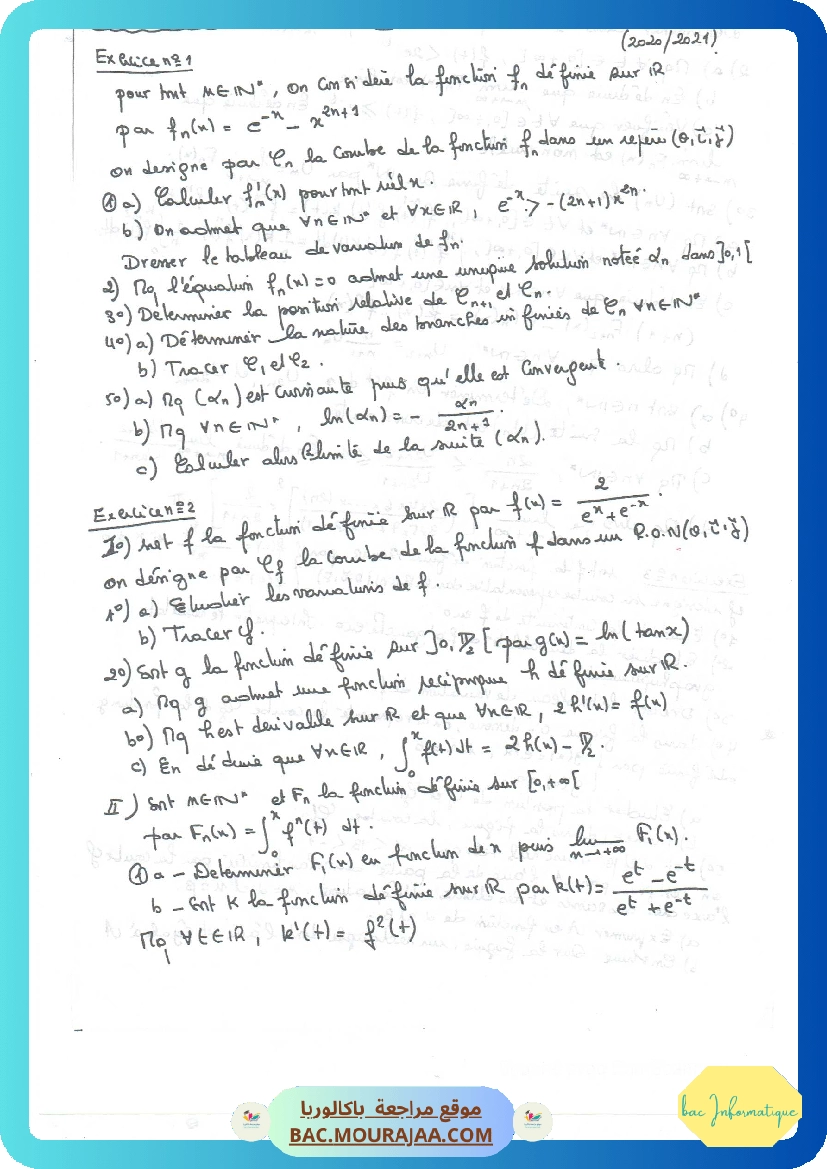 (2020/2021)
Exercice n°1
pour tout n∈IN*, on considère la fonction fn définie sur IR
par fn(x) = e^-x - x^2n+1
on designe par Cn la courbe de la fonction fn dans un repère (O,i,j)
① a) Calculer f'n(x) pour tout réel x.
b) On admet que ∀n∈IN* et ∀x∈IR, e^-x > -(2n+1)x^2n.
Dresser le tableau de variation de fn.
2) Mq l'équation fn(x)=0 admet une unique solution notée αn dans ]0,1[
3°) Déterminer la position relative de Cn+1 et Cn.
4°) a) Déterminer la nature des branches infinies de Cn ∀n∈IN*
b) Tracer C1 et C2.
5°) a) Mq (αn) est croissante puis qu'elle est convergente.
b) Mq ∀n∈IN*, ln(αn) = - αn/(2n+1).
c) Calculer alors la limite de la suite (αn).
Exercice n°2
I°) soit f la fonction définie sur IR par f(x) = 2/(e^x + e^-x).
on désigne par Cf la courbe de la fonction f dans un R.O.N(O,i,j)
1°) a) Etudier les variations de f.
b) Tracer Cf.
2°) Soit g la fonction définie sur ]0,π/2[ par g(x) = ln(tanx)
a) Mq g admet une fonction réciproque h définie sur IR.
b°) Mq h est derivable sur IR et que ∀x∈IR, 2h'(x) = f(x)
c) En déduire que ∀x∈IR, ∫0^x f(t) dt = 2h(x) - π/2.
II) Soit n∈IN* et Fn la fonction définie sur [0,+∞[
par Fn(x) = ∫0^x f^n(t) dt.
① a - Determiner F1(x) en fonction de x puis lim x→+∞ F1(x).
b - Soit K la fonction définie sur IR par k(t) = (e^t - e^-t)/(e^t + e^-t)
Mq ∀t∈IR, k'(t) = f²(t)
موقع مراجعة باكالوريا
BAC.MOURAJAA.COM
bac Informatique